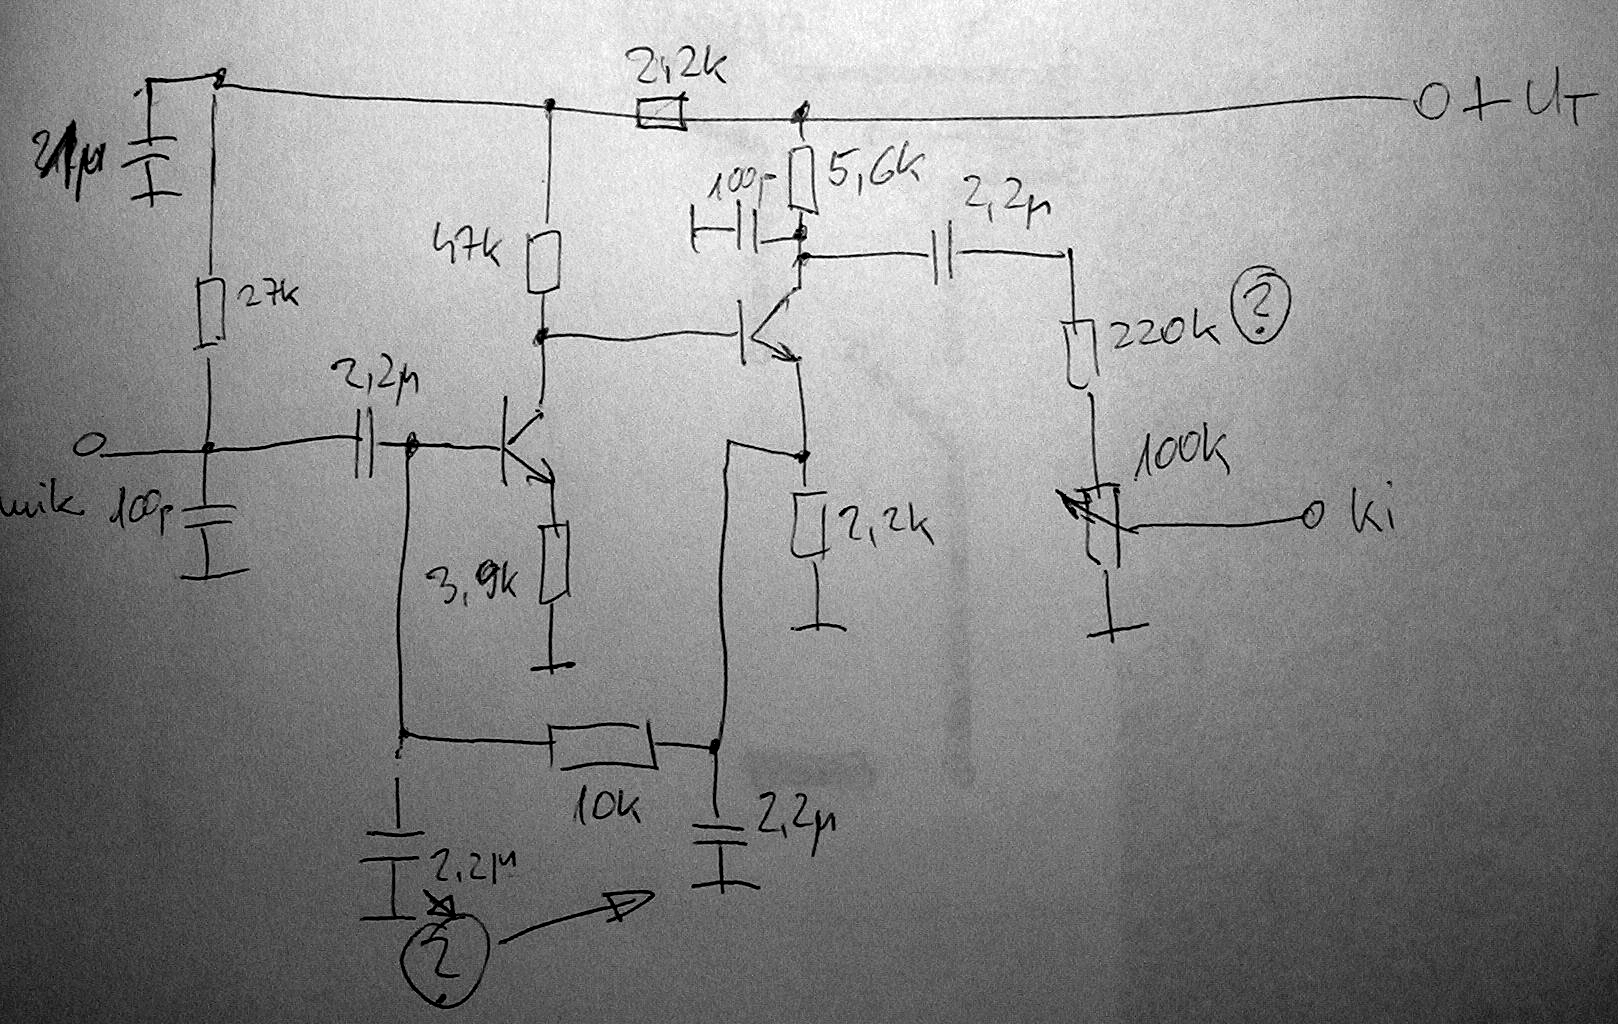 2,2k
+ UT
100p
5,6k
2,2µ
47k
27k
220k ?
2,2µ
100k
mik
100p
2,2k
Ki
3,9k
10k
2,2µ
2,2µ
?